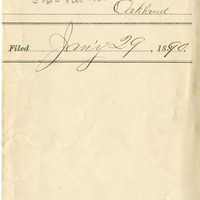 Oakland
Filed Jan'y 29, 1890.